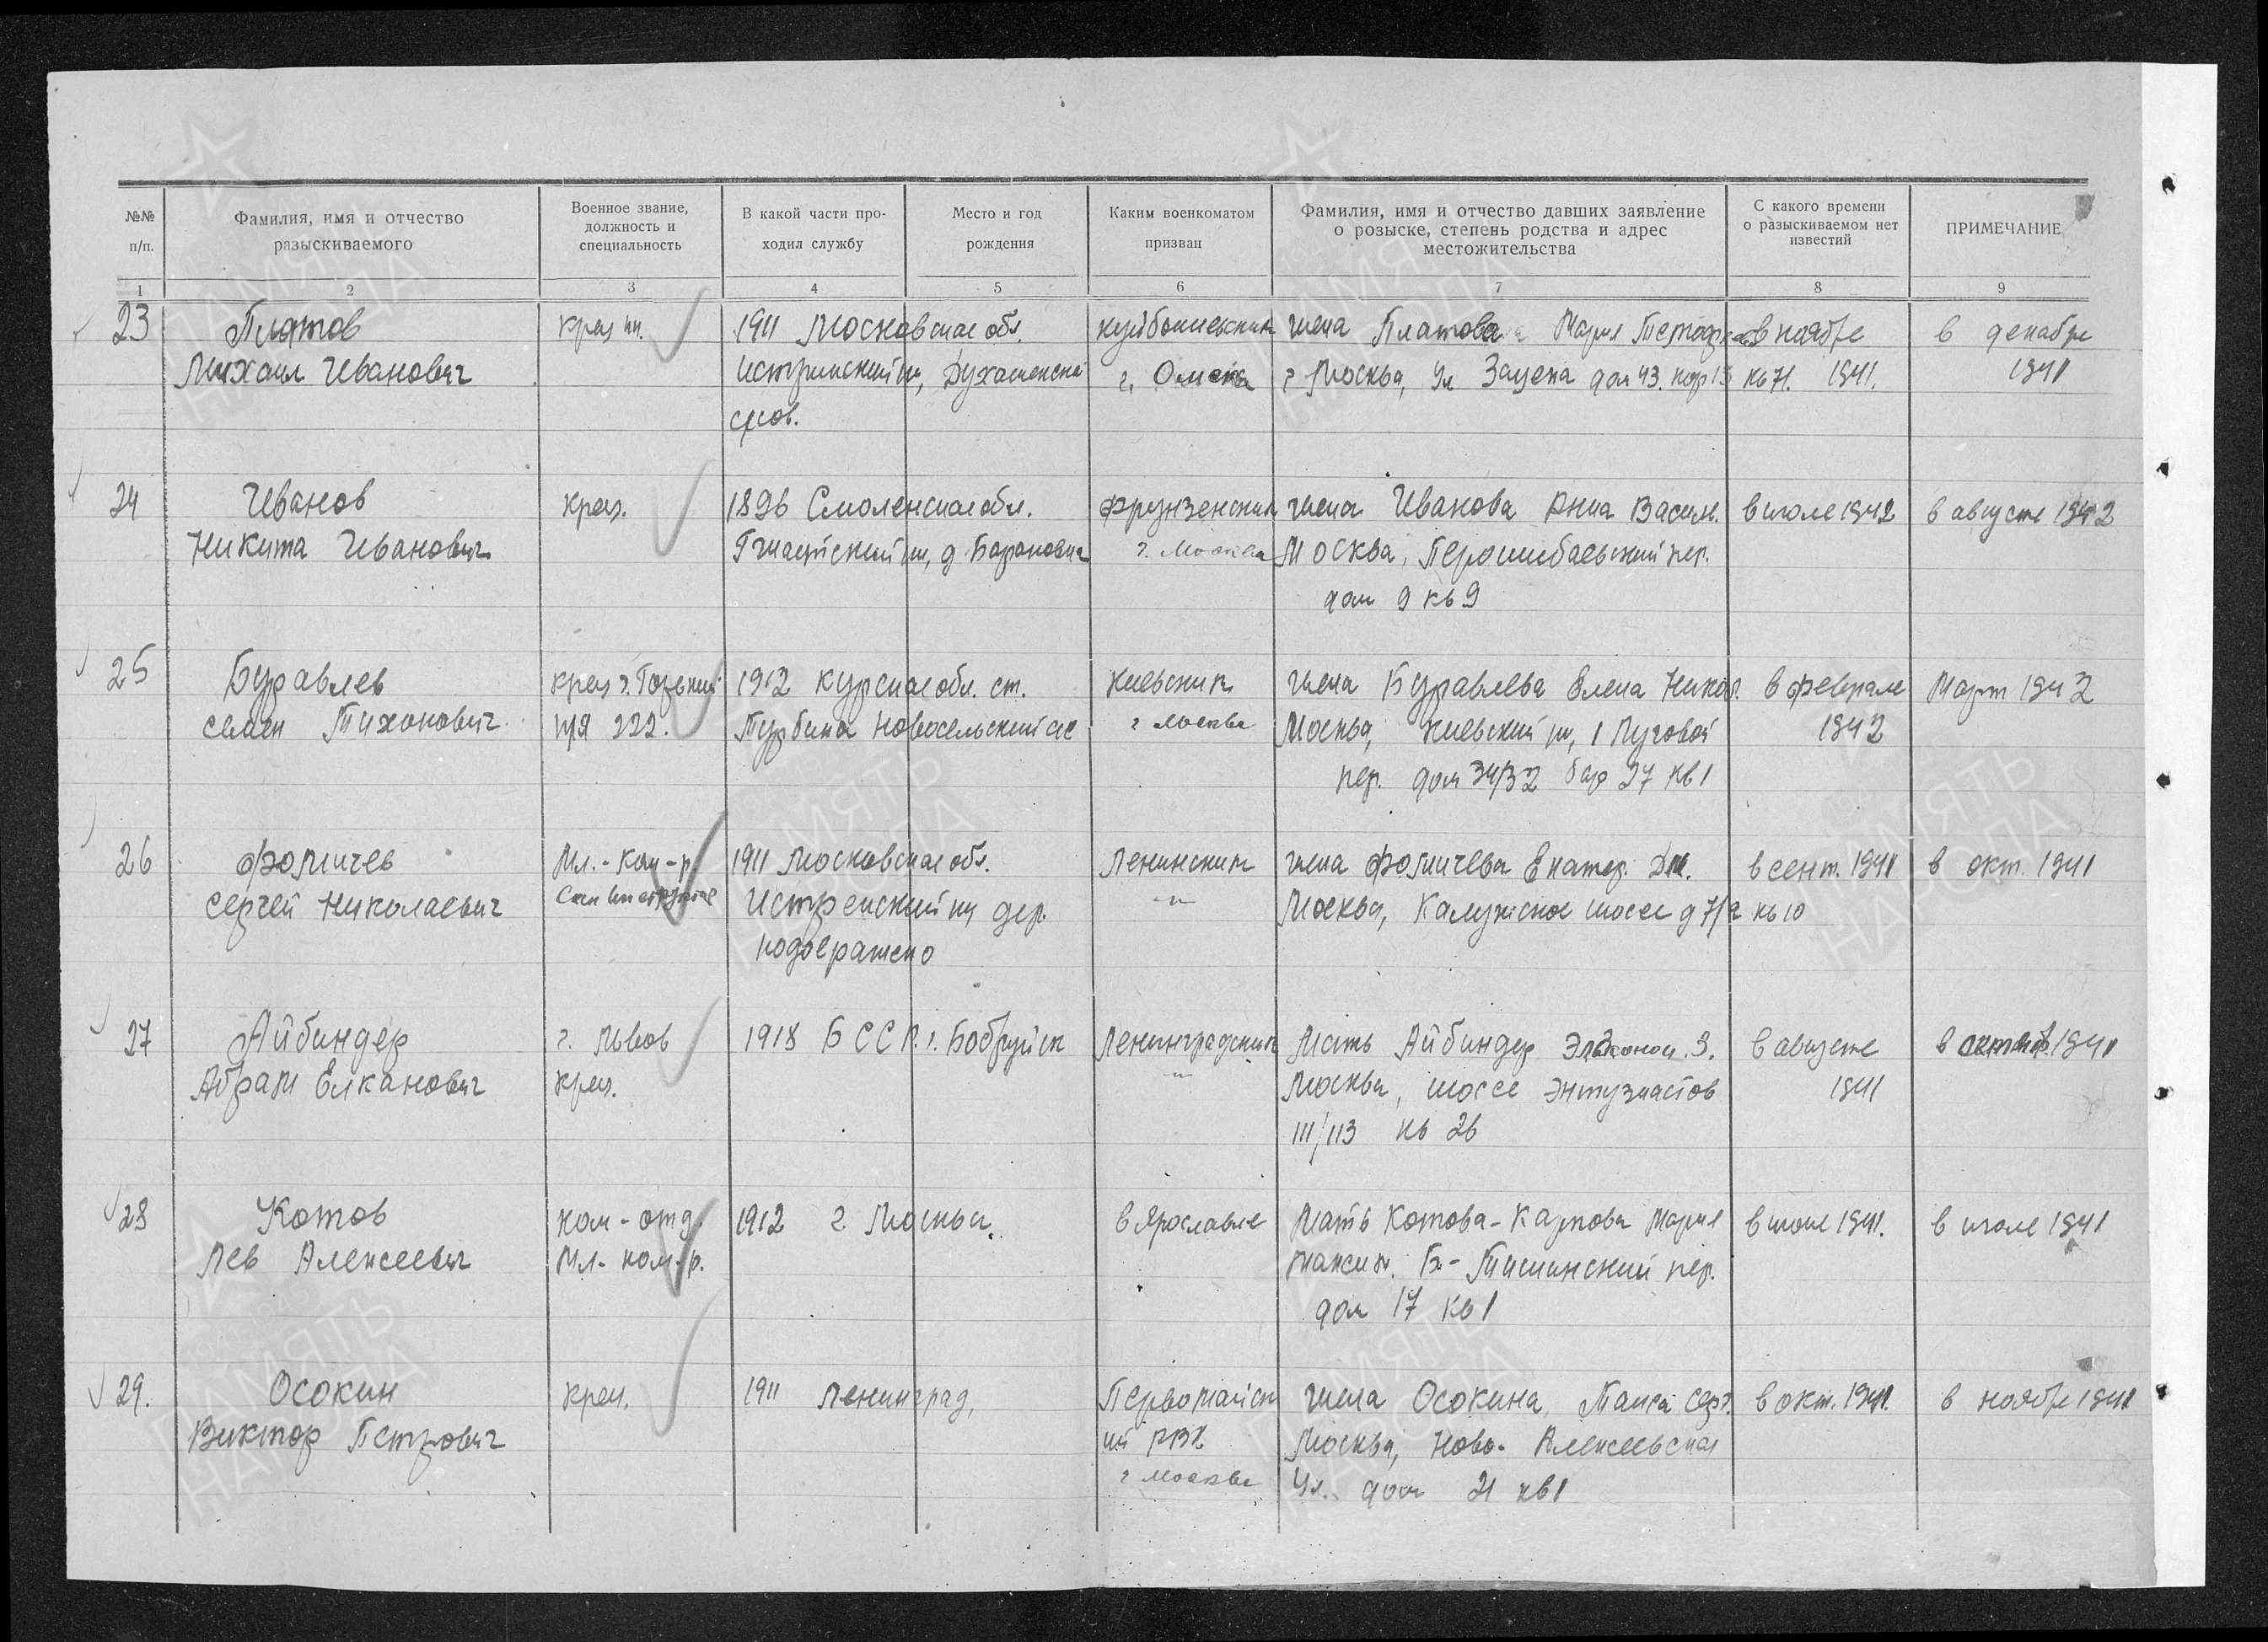 №№ п/п.
Фамилия, имя и отчество разыскиваемого
Военное звание, должность и специальность
В какой части проходил службу
Место и год рождения
Каким военкоматом призван
Фамилия, имя и отчество давших заявление о розыске, степень родства и адрес местожительства
С какого времени о разыскиваемом нет известий
ПРИМЕЧАНИЕ
1 2 3 4 5 6 7 8 9
23 Платов кр-ц 1911 Московская обл. Куйбышевским жена Платова Мария в ноябре в декабре
Михаил Иванович Истринский г. Омска г. Москва, ул Зацепа дом 43. кор 13 кв 71. 1941. 1941
24 Иванов крец. 1896 Смоленская обл. Фрунзенским жена Иванова Анна Васил. в июле 1942 в августе 1942
Никита Иванович Гжатский рн, д. г. Москва Москва, пер.
дом 9 кв 9
25 Буравлев г. Горький 1912 Курская обл. ст. Киевским жена Буравлева Елена Никол. в феврале Март 1942
Тихонович п/я 222. г Москва Москва, Киевский рн, 1 Луговой 1942
пер. дом 34/32 бар 27 кв 1
26 Фомичев Мл.-ком-р 1911 Московская обл. Ленинским жена Фомичева Екатер. Дм. в сент. 1941 в окт. 1941
Сергей Николаевич Истринский рн дер -"- Москва, Калужское шоссе д 7/а кв 10
27 Айбиндер г. Львов 1918 БССР. г. Бобруйск Ленинградским Мать Айбиндер З. в августе в 1941
Абрам Елканович крец. -"- Москва, шоссе Энтузиастов 1941
111/113 кв 26
28 Котов ком-отд. 1912 г Москва. в Ярославле Мать Котова-Карпова Мария в июне 1941. в июле 1941
Лев Алексеевич Мл. ком-р. Максим. Б-Тишинский пер.
дом 17 кв 1
29. Осокин крец. 1911 Ленинград, Первомайск жена Осокина, Таиса Серг. в окт. 1941. в ноябре 1941
Виктор Петрович ий РВК Москва, Ново-Алексеевская
г Москва Ул. дом 21 кв 1
ПАМЯТЬ НАРОДА